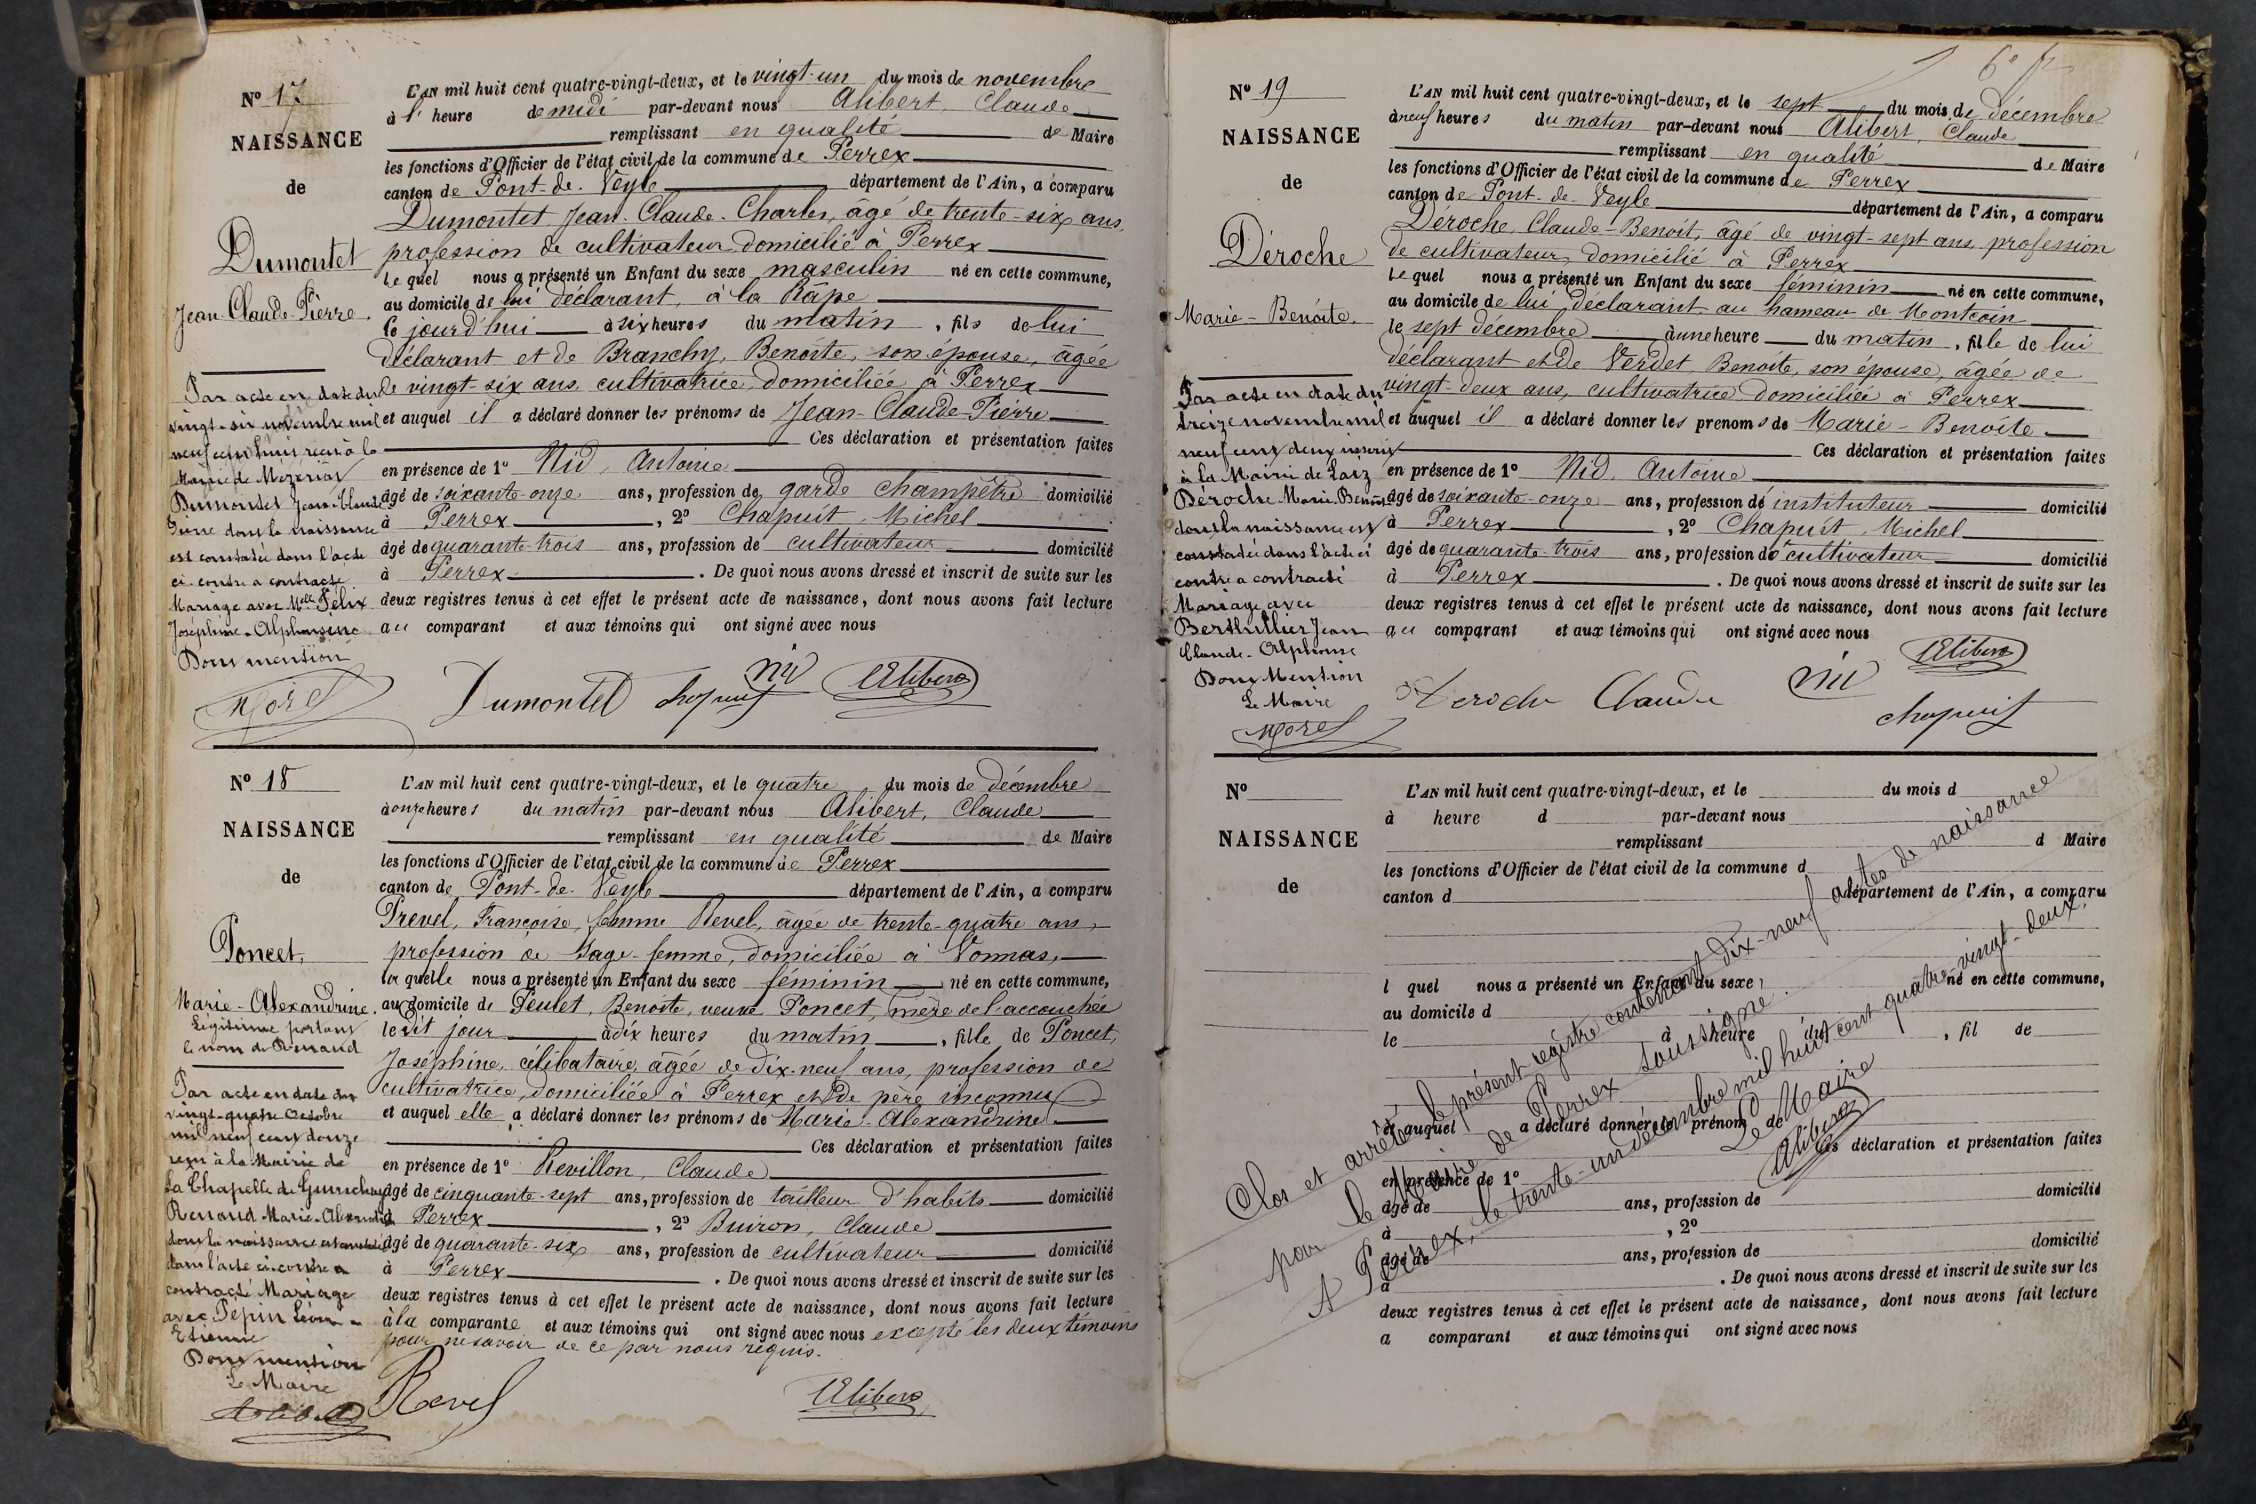 N° 17
NAISSANCE
de
Dumontet
Jean-Claude-Pierre.
Par acte en date du
vingt-six novembre mil
neuf cent huit reçu à la
Mairie de Mézériat
Dumontet Jean-Claude
Pierre dont la naissance
est constatée dans l'acte
ci-contre a contracté
Mariage avec Melle Félix
Joséphine-Alphonsine
Dont mention
Morel
L'AN mil huit cent quatre-vingt-deux, et le vingt-un du mois de novembre
à l' heure de midi par-devant nous Alibert, Claude
remplissant en qualité de Maire
les fonctions d'Officier de l'état civil de la commune de Perrex
canton de Pont-de-Veyle département de l'Ain, a comparu
Dumontet Jean-Claude-Charles, âgé de trente-six ans,
profession de cultivateur domicilié à Perrex
le quel nous a présenté un Enfant du sexe masculin né en cette commune,
au domicile de lui déclarant, à la Râpe
ce jourd'hui à six heures du matin, fils de lui
déclarant et de Branchy, Benoîte, son épouse, âgée
de vingt-six ans, cultivatrice domiciliée à Perrex
et auquel il a déclaré donner les prénoms de Jean-Claude-Pierre
Ces déclaration et présentation faites
en présence de 1° Nid, Antoine
âgé de soixante-onze ans, profession de garde champêtre domicilié
à Perrex, 2° Chapuit, Michel
âgé de quarante-trois ans, profession de cultivateur domicilié
à Perrex. De quoi nous avons dressé et inscrit de suite sur les
deux registres tenus à cet effet le présent acte de naissance, dont nous avons fait lecture
au comparant et aux témoins qui ont signé avec nous
Dumontet chapuit nid Alibert
N° 18
NAISSANCE
de
Poncet,
Marie-Alexandrine.
Légitimée portant
le nom de Renaud
Par acte en date du
vingt-quatre octobre
mil neuf cent douze
reçu à la Mairie de
La Chapelle de Guinchay
Renaud Marie-Alexandrine
dont la naissance est constatée
dans l'acte ci-contre a
contracté Mariage
avec Pépin
Etienne
Dont mention
Le Maire
L'AN mil huit cent quatre-vingt-deux, et le quatre du mois de décembre
à onze heures du matin par-devant nous Alibert, Claude
remplissant en qualité de Maire
les fonctions d'Officier de l'état civil de la commune de Perrex
canton de Pont-de-Veyle département de l'Ain, a comparu
Prevel, Françoise, femme Revel, âgée de trente-quatre ans,
profession de Sage-femme, domiciliée à Vonnas,
la quelle nous a présenté un Enfant du sexe féminin né en cette commune,
au domicile de Teulet, Benoîte, veuve Poncet, mère de l'accouchée
le dit jour à dix heures du matin, fille de Poncet,
Joséphine, célibataire, âgée de dix-neuf ans, profession de
cultivatrice, domiciliée à Perrex et de père inconnu
et auquel elle a déclaré donner les prénoms de Marie-Alexandrine.
Ces déclaration et présentation faites
en présence de 1° Revillon, Claude
âgé de cinquante-sept ans, profession de tailleur d'habits domicilié
à Perrex, 2° Buiron, Claude
âgé de quarante-six ans, profession de cultivateur domicilié
à Perrex. De quoi nous avons dressé et inscrit de suite sur les
deux registres tenus à cet effet le présent acte de naissance, dont nous avons fait lecture
à la comparante et aux témoins qui ont signé avec nous excepté les deux témoins
pour ne savoir de ce par nous requis.
Revel Alibert
N° 19
NAISSANCE
de
Déroche
Marie-Benoîte.
Par acte en date du
treize novembre mil
neuf cent deux inscrit
à la Mairie de Laiz
Déroche Marie Benoîte
dont la naissance est
constatée dans l'acte ci
contre a contracté
Mariage avec
Berthillier Jean
Claude-Alphonse
Dont Mention
Le Maire
Morel
L'AN mil huit cent quatre-vingt-deux, et le sept du mois de décembre
à neuf heures du matin par-devant nous Alibert, Claude
remplissant en qualité de Maire
les fonctions d'Officier de l'état civil de la commune de Perrex
canton de Pont-de-Veyle département de l'Ain, a comparu
Déroche, Claude-Benoit, âgé de vingt-sept ans, profession
de cultivateur, domicilié à Perrex
le quel nous a présenté un Enfant du sexe féminin né en cette commune,
au domicile de lui déclarant au hameau de Montcoin
le sept décembre à une heure du matin, fille de lui
déclarant et de Verdet Benoîte, son épouse, âgée de
vingt-deux ans, cultivatrice domiciliée à Perrex
et auquel il a déclaré donner les prénoms de Marie-Benoîte.
Ces déclaration et présentation faites
en présence de 1° Nid, Antoine
âgé de soixante-onze ans, profession de instituteur domicilié
à Perrex, 2° Chapuit, Michel
âgé de quarante-trois ans, profession de cultivateur domicilié
à Perrex. De quoi nous avons dressé et inscrit de suite sur les
deux registres tenus à cet effet le présent acte de naissance, dont nous avons fait lecture
au comparant et aux témoins qui ont signé avec nous
Deroche Claude nid Alibert
chapuit
N°
NAISSANCE
de
L'AN mil huit cent quatre-vingt-deux, et le du mois d
à heure d par-devant nous
remplissant d Maire
les fonctions d'Officier de l'état civil de la commune d
canton d département de l'Ain, a comparu
l quel nous a présenté un Enfant du sexe né en cette commune,
au domicile d
le à heure du , fil de
et auquel a déclaré donner le prénom de
Ces déclaration et présentation faites
en présence de 1°
âgé de ans, profession de domicilié
à , 2°
âgé de ans, profession de domicilié
à . De quoi nous avons dressé et inscrit de suite sur les
deux registres tenus à cet effet le présent acte de naissance, dont nous avons fait lecture
a comparant et aux témoins qui ont signé avec nous
Clos et arrêté le présent registre contenant dix-neuf actes de naissance
par le Maire de Perrex soussigné.
A Perrex, le trente-un décembre mil huit cent quatre-vingt-deux.
Le Maire
Alibert